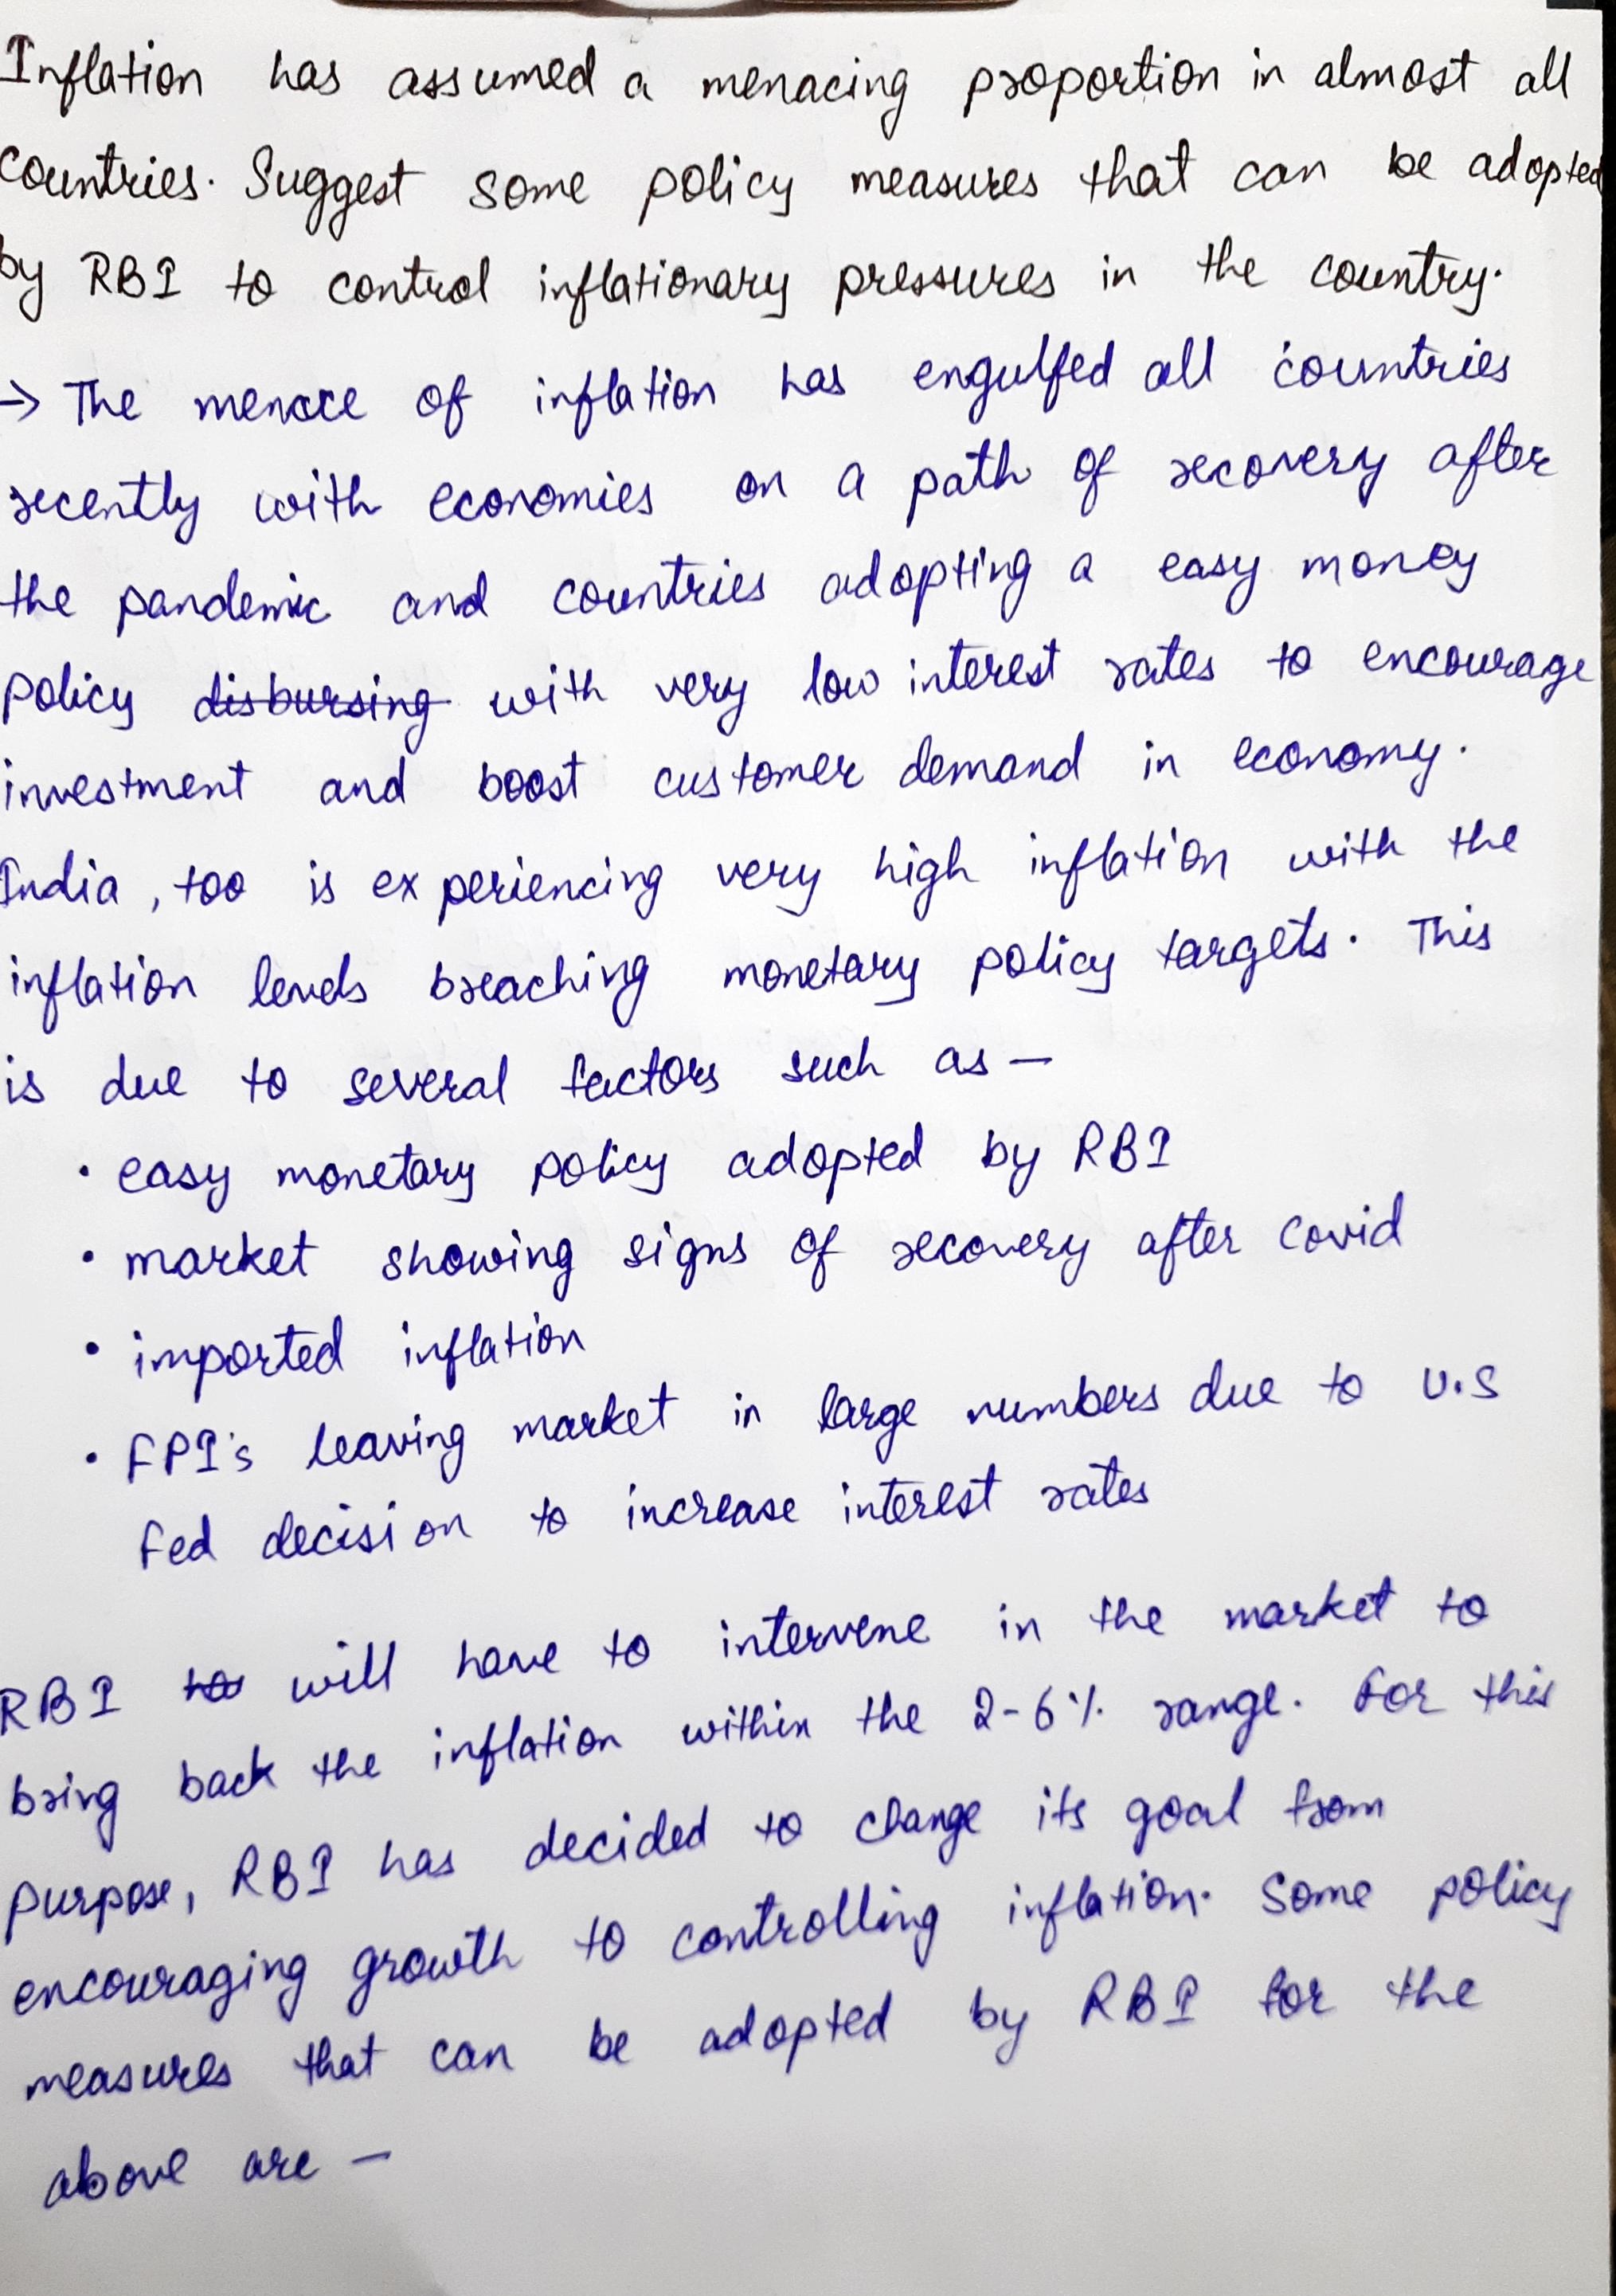 Inflation has assumed a menacing proportion in almost all
countries. Suggest some policy measures that can be adopted
by RBI to control inflationary pressures in the country.
→ The menace of inflation has engulfed all countries
recently with economies on a path of recovery after
the pandemic and countries adopting a easy money
policy disbursing with very low interest rates to encourage
investment and boost customer demand in economy.
India, too is experiencing very high inflation with the
inflation levels breaching monetary policy targets. This
is due to several factors such as —
• easy monetary policy adopted by RBI
• market showing signs of recovery after covid
• imported inflation
• FPI's leaving market in large numbers due to U.S
Fed decision to increase interest rates
RBI to will have to intervene in the market to
bring back the inflation within the 2-6% range. For this
purpose, RBI has decided to change its goal from
encouraging growth to controlling inflation. Some policy
measures that can be adopted by RBI for the
above are —